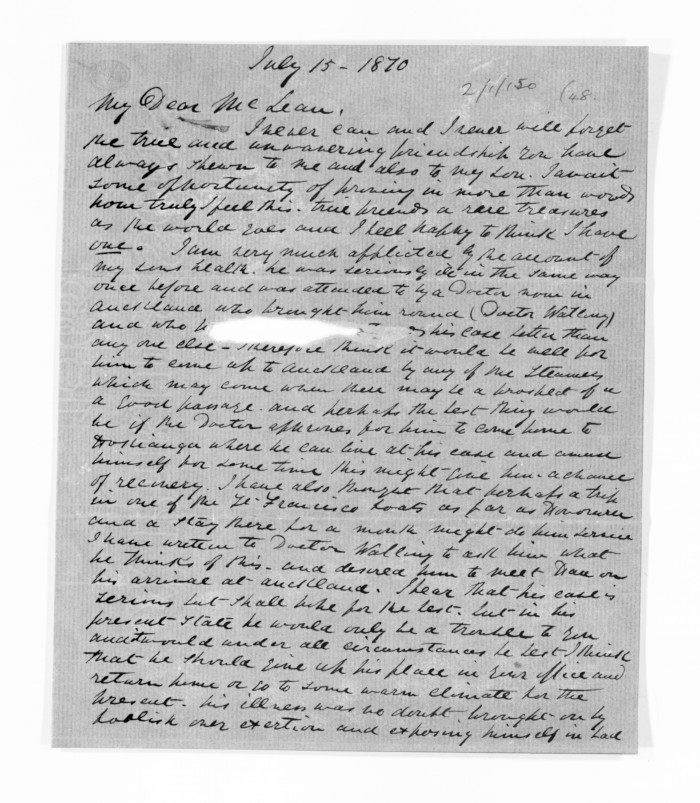 July 15 - 1870
2/1/150 (48.
My Dear McLean.
I never can and I never will forget
the true and unwavering friendship you have
always shewn to me and also to my son. I await
some opportunity of proving in more than words
how truly I feel this. true friends a rare treasures
as the world goes and I feel happy to think I have
one. I am very much afflicted by the account of
my sons health. he was seriously ill in the same way
once before and was attended to by a Doctor now in
Auckland who brought him round (Doctor Watling)
and who his case better than
any one else - therefore think it would be well for
him to come up to Auckland by any of the Steamers
which may come when there may be a prospect of a
a good passage. and perhaps the best thing would
be if the Doctor approves for him to come home to
Hokianga where he can live at his ease and amuse
himself for some time this might give him a chance
of recovery. I have also thought that perhaps a trip
in one of the St Francisco boats as far as
and a stay there for a month might do him service
I have written to Doctor Watling to ask him what
he thinks of this - and desired him to meet on
his arrival at Auckland. I hear that his case is
serious but shall hope for the best. but in his
present state he would only be a trouble to you
and it would under all circumstances be best I think
that he should give up his place in your office and
return home or go to some warm climate for the
present. his illness was no doubt brought on by
foolish over exertion and exposing himself in bad